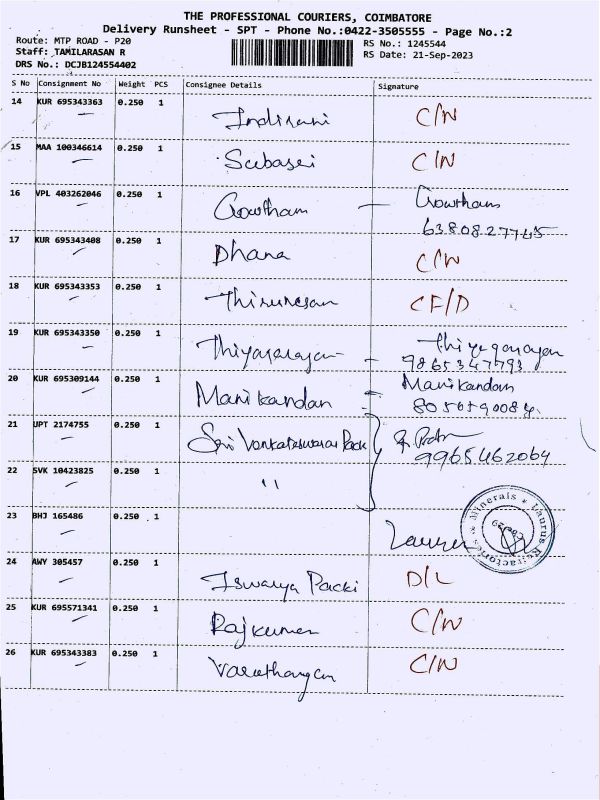 THE PROFESSIONAL COURIERS, COIMBATORE
Delivery Runsheet - SPT - Phone No.:0422-3505555 - Page No.:2
Route: MTP ROAD - P20
RS No.: 1245544
Staff: TAMILARASAN R
RS Date: 21-Sep-2023
DRS No.: DCJB124554402
S No Consignment No Weight PCS Consignee Details Signature
14 KUR 695343363 0.250 1 Indirani C/N
15 MAA 100346614 0.250 1 Subasri C/N
16 VPL 403262046 0.250 1 Gowtham - Gowtham
6380827745
17 KUR 695343408 0.250 1 Dhana C/N
18 KUR 695343353 0.250 1 CF/D
19 KUR 695343350 0.250 1 Thiyagarajan - Thiyagarajan
9865347793
20 KUR 695309144 0.250 1 Manikandan - Manikandan
21 UPT 2174755 0.250 1 Sri Venkateswara Pack
9965462064
22 SVK 10423825 0.250 1 "
23 BHJ 165486 0.250 1
Laurus Refractories & Minerals
24 AWY 305457 0.250 1 Iswarya Packi D/L
25 KUR 695571341 0.250 1 Rajkumar C/N
26 KUR 695343383 0.250 1 C/N